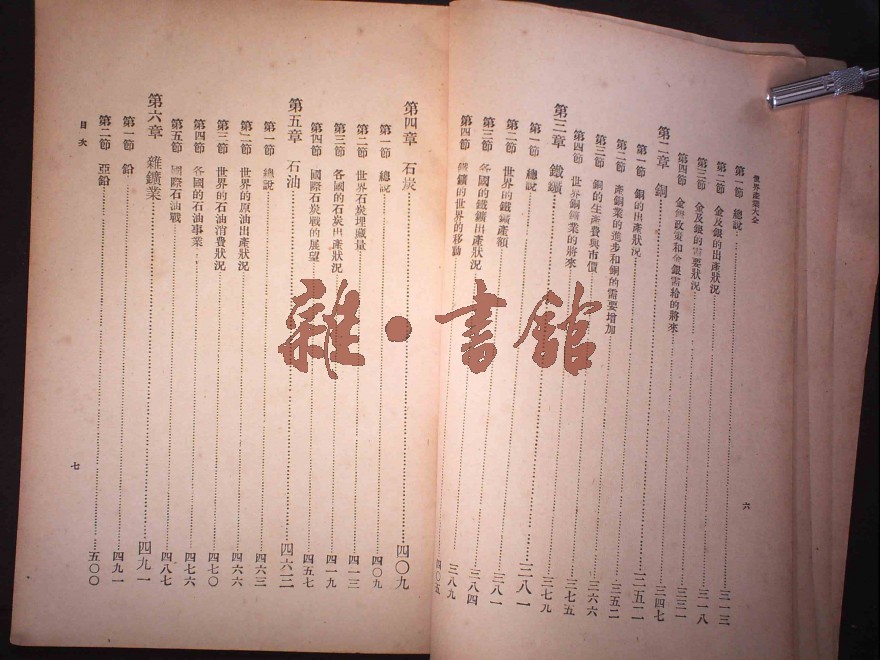 世界產業大全
第一節 總說…三一三
第二節 金及銀的出產狀況…三一八
第三節 金及銀的需要狀況…三三一
第四節 金銀政策和金銀需給的將來…三四七
第二章 銅…三五二
第一節 銅的出產狀況…三五二
第二節 產銅業的進步和銅的需要增加…三六六
第三節 銅的生產費與市價…三七五
第四節 世界銅鑛業的將來…三七九
第三章 鐵鑛…三八一
第一節 總說…三八一
第二節 世界的鐵鑛產額…三八四
第三節 各國的鐵鑛出產狀況…三八九
第四節 鐵鑛的世界的移動…四〇五
六
第四章 石炭…四〇九
第一節 總說…四〇九
第二節 世界石炭埋藏量…四一三
第三節 各國的石炭出產狀況…四一九
第四節 國際石炭戰的展望…四五七
第五章 石油…四六三
第一節 總說…四六三
第二節 世界的原油出產狀況…四六六
第三節 世界的石油消費狀況…四七〇
第四節 各國的石油事業…四七六
第五節 國際石油戰…四八七
第六章 雜鑛業…四九一
第一節 鉛…四九一
第二節 亞鉛…五〇〇
目次
七
雜·書館